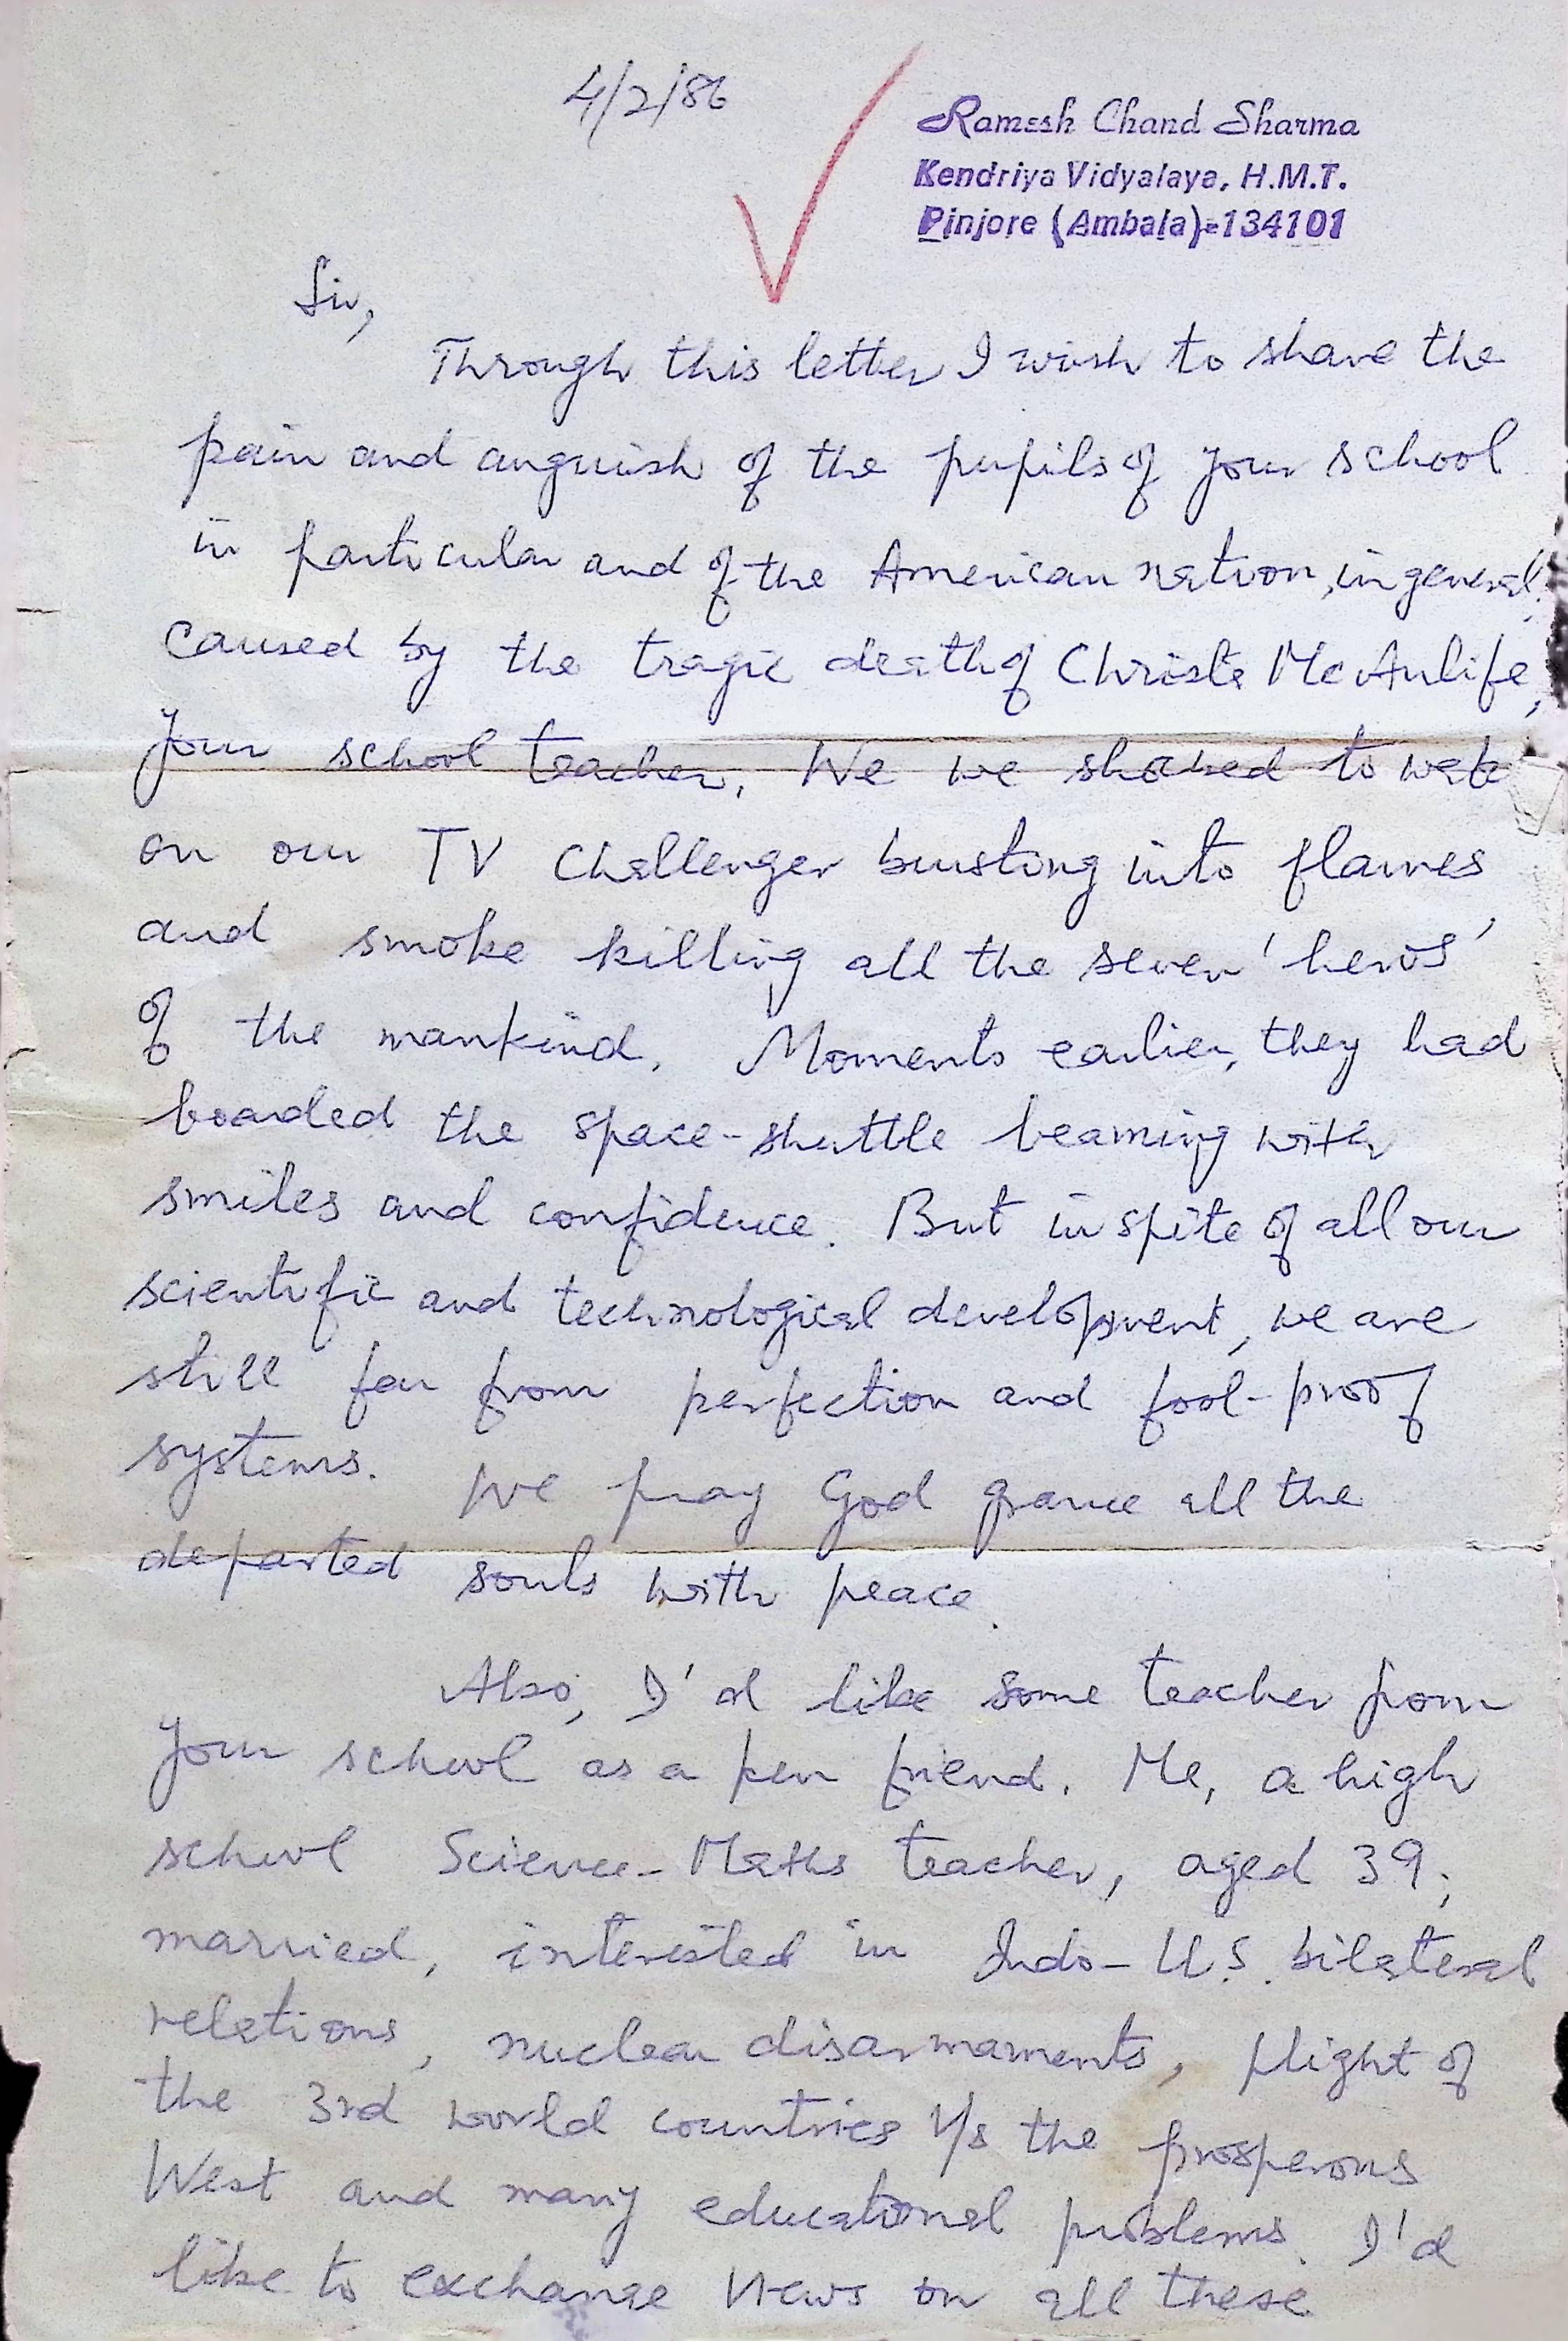 4/2/86
Ramesh Chand Sharma
Kendriya Vidyalaya, H.M.T.
Pinjore (Ambala)-134101
Sir,
Through this letter I wish to share the
pain and anguish of the pupils of your school
in particular and of the American nation, in general,
caused by the tragic death of Christe McAulife,
your school teacher. We we to
on our TV Challenger bursting into flames
and smoke killing all the seven 'heros'
of the mankind. Moments earlier, they had
boarded the space-shuttle beaming with
smiles and confidence. But in spite of all our
scientific and technological development, we are
still far from perfection and fool-proof
systems. We pray God all the
departed souls with peace.
Also, I'd like some teacher from
your school as a pen friend. Me, a high
school Science-Maths teacher, aged 39;
married, interested in Indo-U.S. bilateral
relations, nuclear disarmaments, plight of
the 3rd world countries v/s the prosperous
West and many educational problems. I'd
like to exchange views on all these